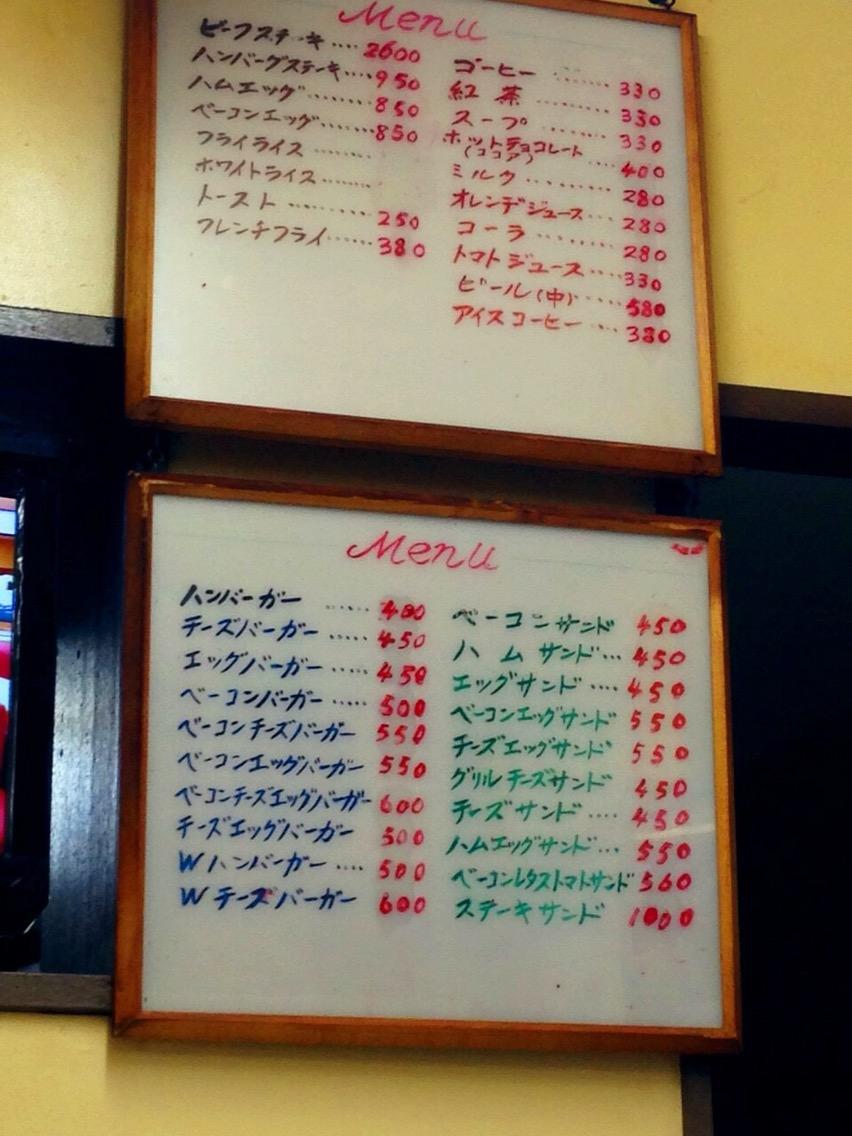 Menu
ビーフステーキ .... 2600
ハンバーグステーキ ..... 950
ハムエッグ ........ 850
ベーコンエッグ ....... 850
フライライス .......
ホワイトライス .......
トースト ......... 250
フレンチフライ ...... 380
コーヒー ....... 330
紅茶 ......... 330
スープ ........ 330
ホットチョコレート
(ココア) ..... 400
ミルク ........ 280
オレンヂジュース .... 280
コーラ ........ 280
トマトジュース .... 330
ビール(中) ..... 580
アイスコーヒー .... 380
Menu
ハンバーガー ...... 400
チーズバーガー ..... 450
エッグバーガー ..... 450
ベーコンバーガー ..... 500
ベーコンチーズバーガー 550
ベーコンエッグバーガー 550
ベーコンチーズエッグバーガー 600
チーズエッグバーガー 500
W ハンバーガー .... 500
W チーズバーガー 600
ベーコンサンド 450
ハムサンド ... 450
エッグサンド .... 450
ベーコンエッグサンド 550
チーズエッグサンド 550
グリルチーズサンド 450
チーズサンド .... 450
ハムエッグサンド ... 550
ベーコンレタストマトサンド 560
ステーキサンド 1000